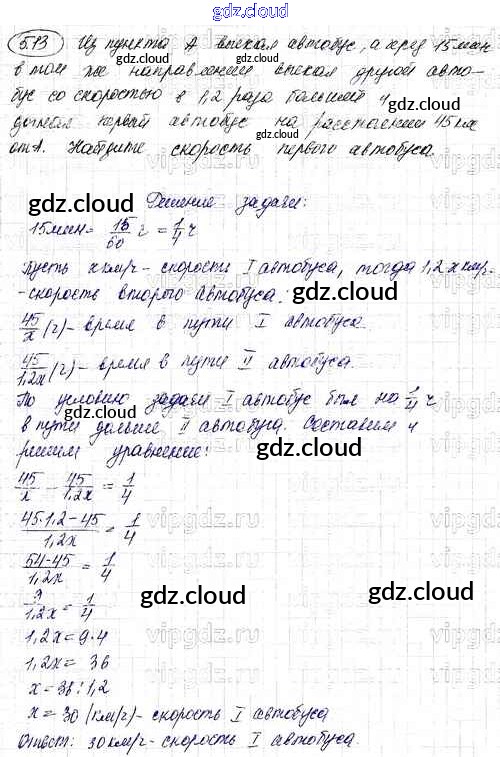 gdz.cloud
573 Из пункта А выехал автобус, а через 15 мин
в том же направлении выехал другой авто-
бус со скоростью в 1,2 раза большей и
догнал первый автобус на расстоянии 45 км
от А. Найдите скорость первого автобуса.
gdz.cloud gdz.cloud
Решение задачи:
15 мин = 15/60 ч = 1/4 ч
Пусть x км/ч - скорость I автобуса, тогда 1,2x км/ч-
-скорость второго автобуса.
gdz.cloud
45/x (ч) - время в пути I автобуса.
45/1,2x (ч) - время в пути II автобуса.
По условию задачи I автобус был на 1/4 ч
gdz.cloud gdz.cloud
в пути дольше II автобуса. Составим и
решим уравнение:
gdz.cloud
45/x - 45/1,2x = 1/4
45·1,2-45/1,2x = 1/4
54-45/1,2x = 1/4
gdz.cloud gdz.cloud
9/1,2x = 1/4
1,2x = 9·4
1,2x = 36
x = 36:1,2
gdz.cloud
x = 30 (км/ч) - скорость I автобуса
Ответ: 30 км/ч - скорость I автобуса.
gdz.cloud